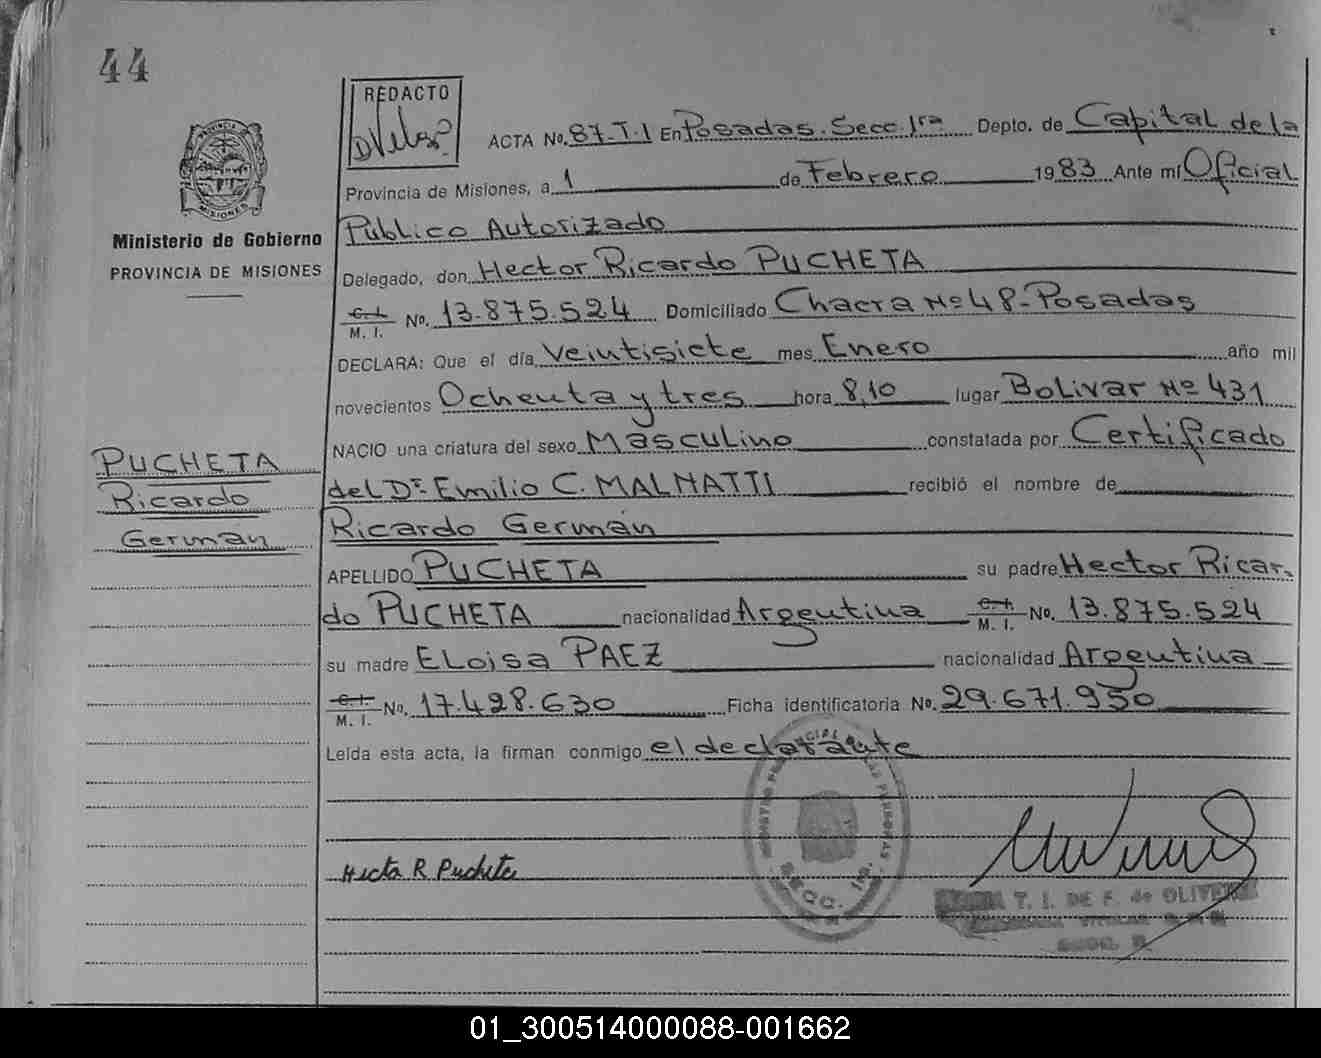 44
REDACTO
ACTA No. 87-T-I En Posadas. Secc. 1ra Depto. de Capital de la
Provincia de Misiones, a 1 de Febrero 1983 Ante mí Oficial
Público Autorizado
PROVINCIA DE
MISIONES
Ministerio de Gobierno
PROVINCIA DE MISIONES
Delegado, don Hector Ricardo PUCHETA
C. I.
M. I. No. 13.875.524 Domiciliado Chacra Nº 48-Posadas
DECLARA: Que el día Veintisiete mes Enero año mil
novecientos Ochenta y tres hora 8,10 lugar Bolivar Nº 431
NACIO una criatura del sexo Masculino constatada por Certificado
del Dr. Emilio C. MALNATTI recibió el nombre de
Ricardo Germán
PUCHETA
Ricardo
Germán
APELLIDO PUCHETA su padre Hector Ricar-
do PUCHETA nacionalidad Argentina C. I.
M. I. No. 13.875.524
su madre ELoisa PAEZ nacionalidad Argentina
C. I.
M. I. No. 17.428.630 Ficha identificatoria No. 29.671.950
Leída esta acta, la firman conmigo el declarante
Hector R Pucheta
SECC. 1ra.
T. I. DE F. de OLIVEIRA
01_300514000088-001662